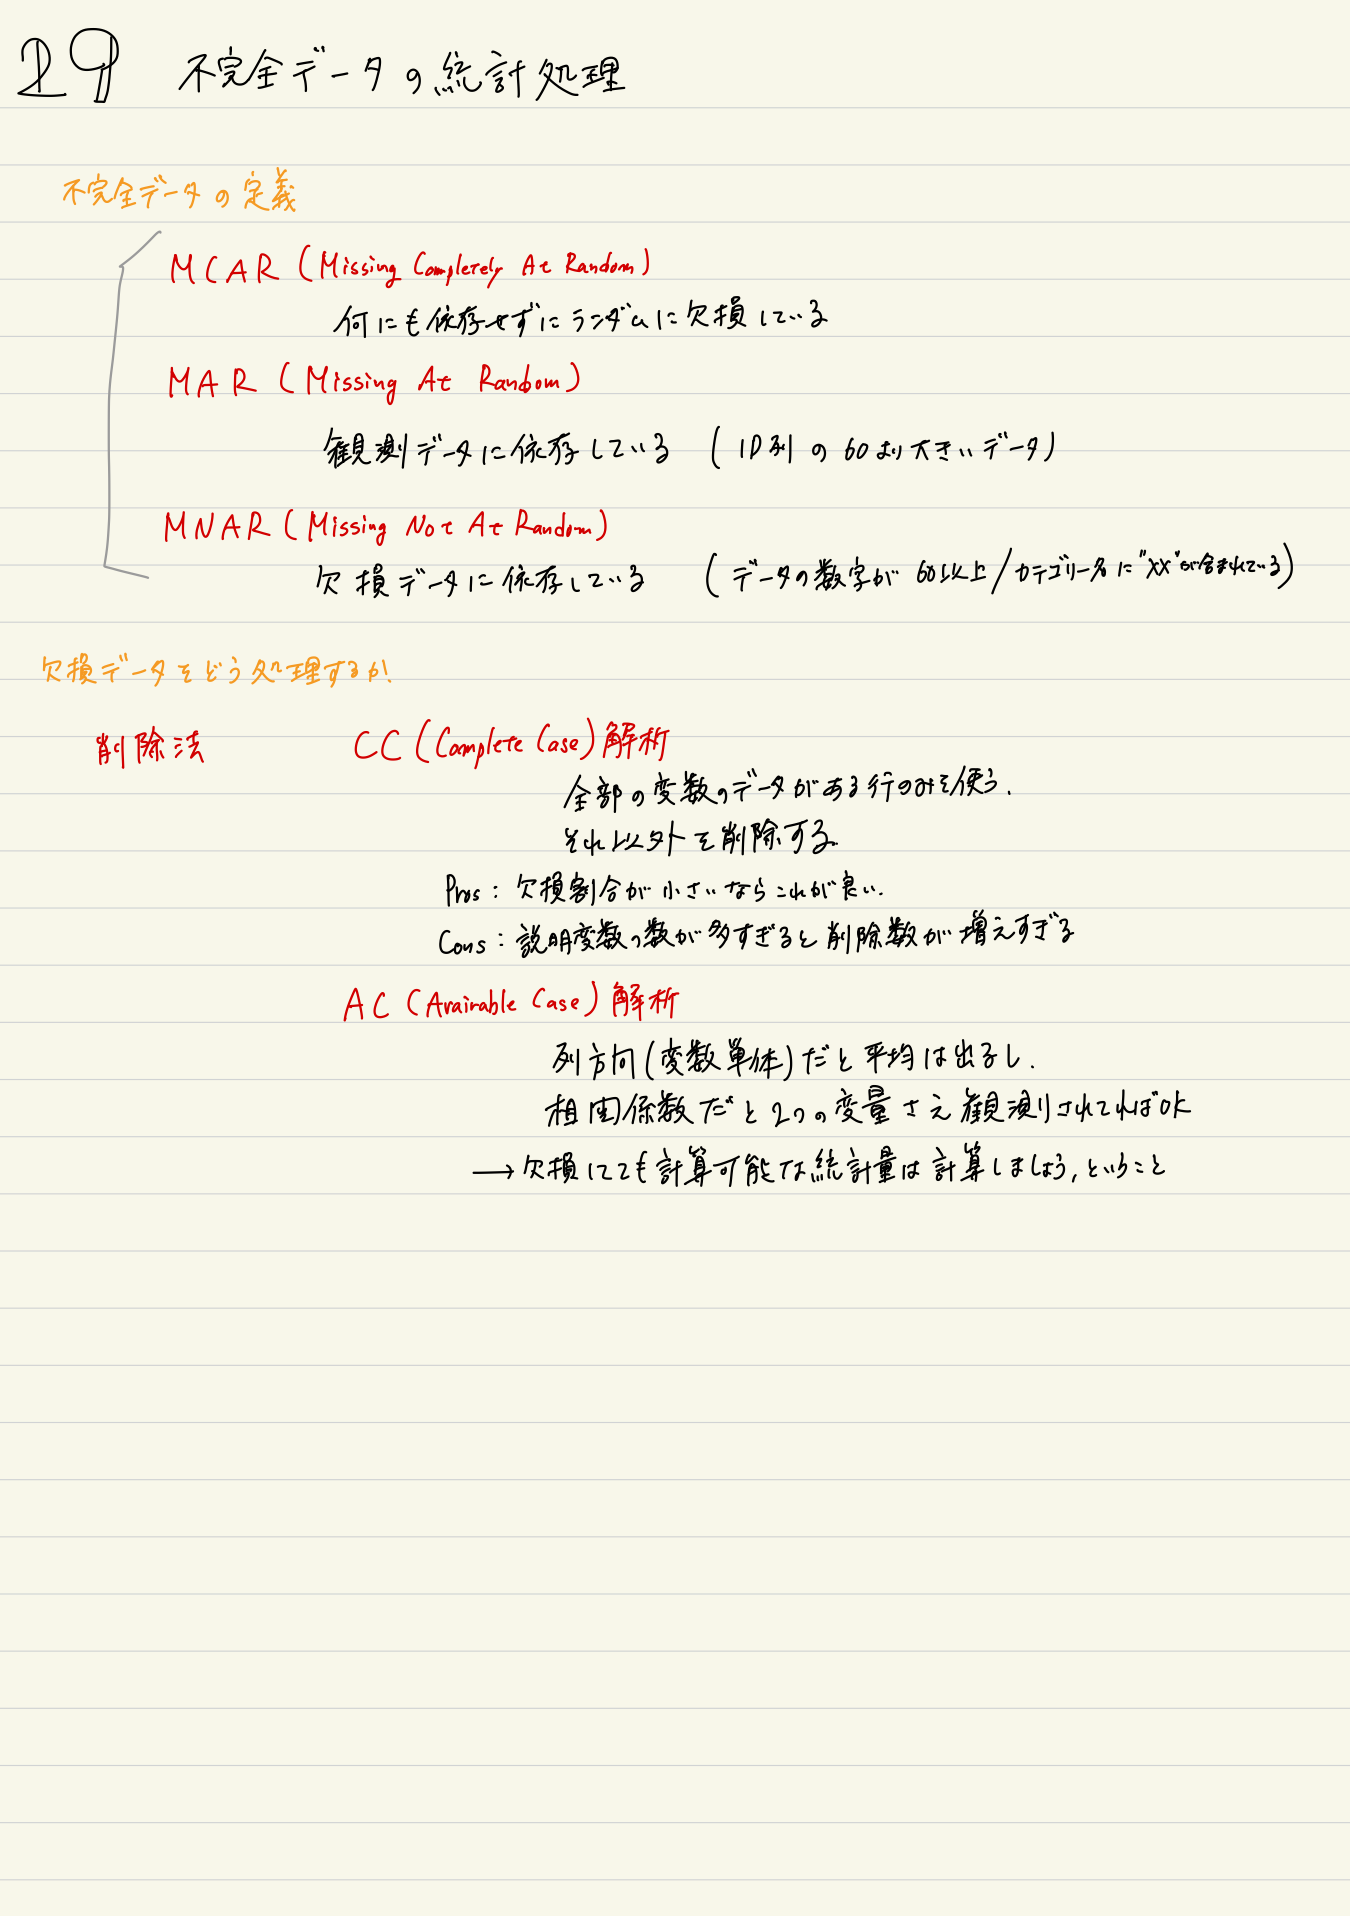 29 不完全データの統計処理
不完全データの定義
MCAR (Missing Completely At Random)
何にも依存せずにランダムに欠損している
MAR (Missing At Random)
観測データに依存している (ID列の60より大きいデータ)
MNAR (Missing Not At Random)
欠損データに依存している (データの数字が60以上/カテゴリー名に"XX"が含まれている)
欠損データをどう処理するか.
削除法 CC (Complete Case) 解析
全部の変数のデータがある行のみを使う.
それ以外を削除する.
Pros : 欠損割合が小さいならこれが良い.
Cons : 説明変数の数が多すぎると削除数が増えすぎる
AC (Avairable Case) 解析
列方向(変数単体)だと平均は出るし.
相関係数だと2つの変量さえ観測されてればOK
→欠損してても計算可能な統計量は計算しましょう,ということ